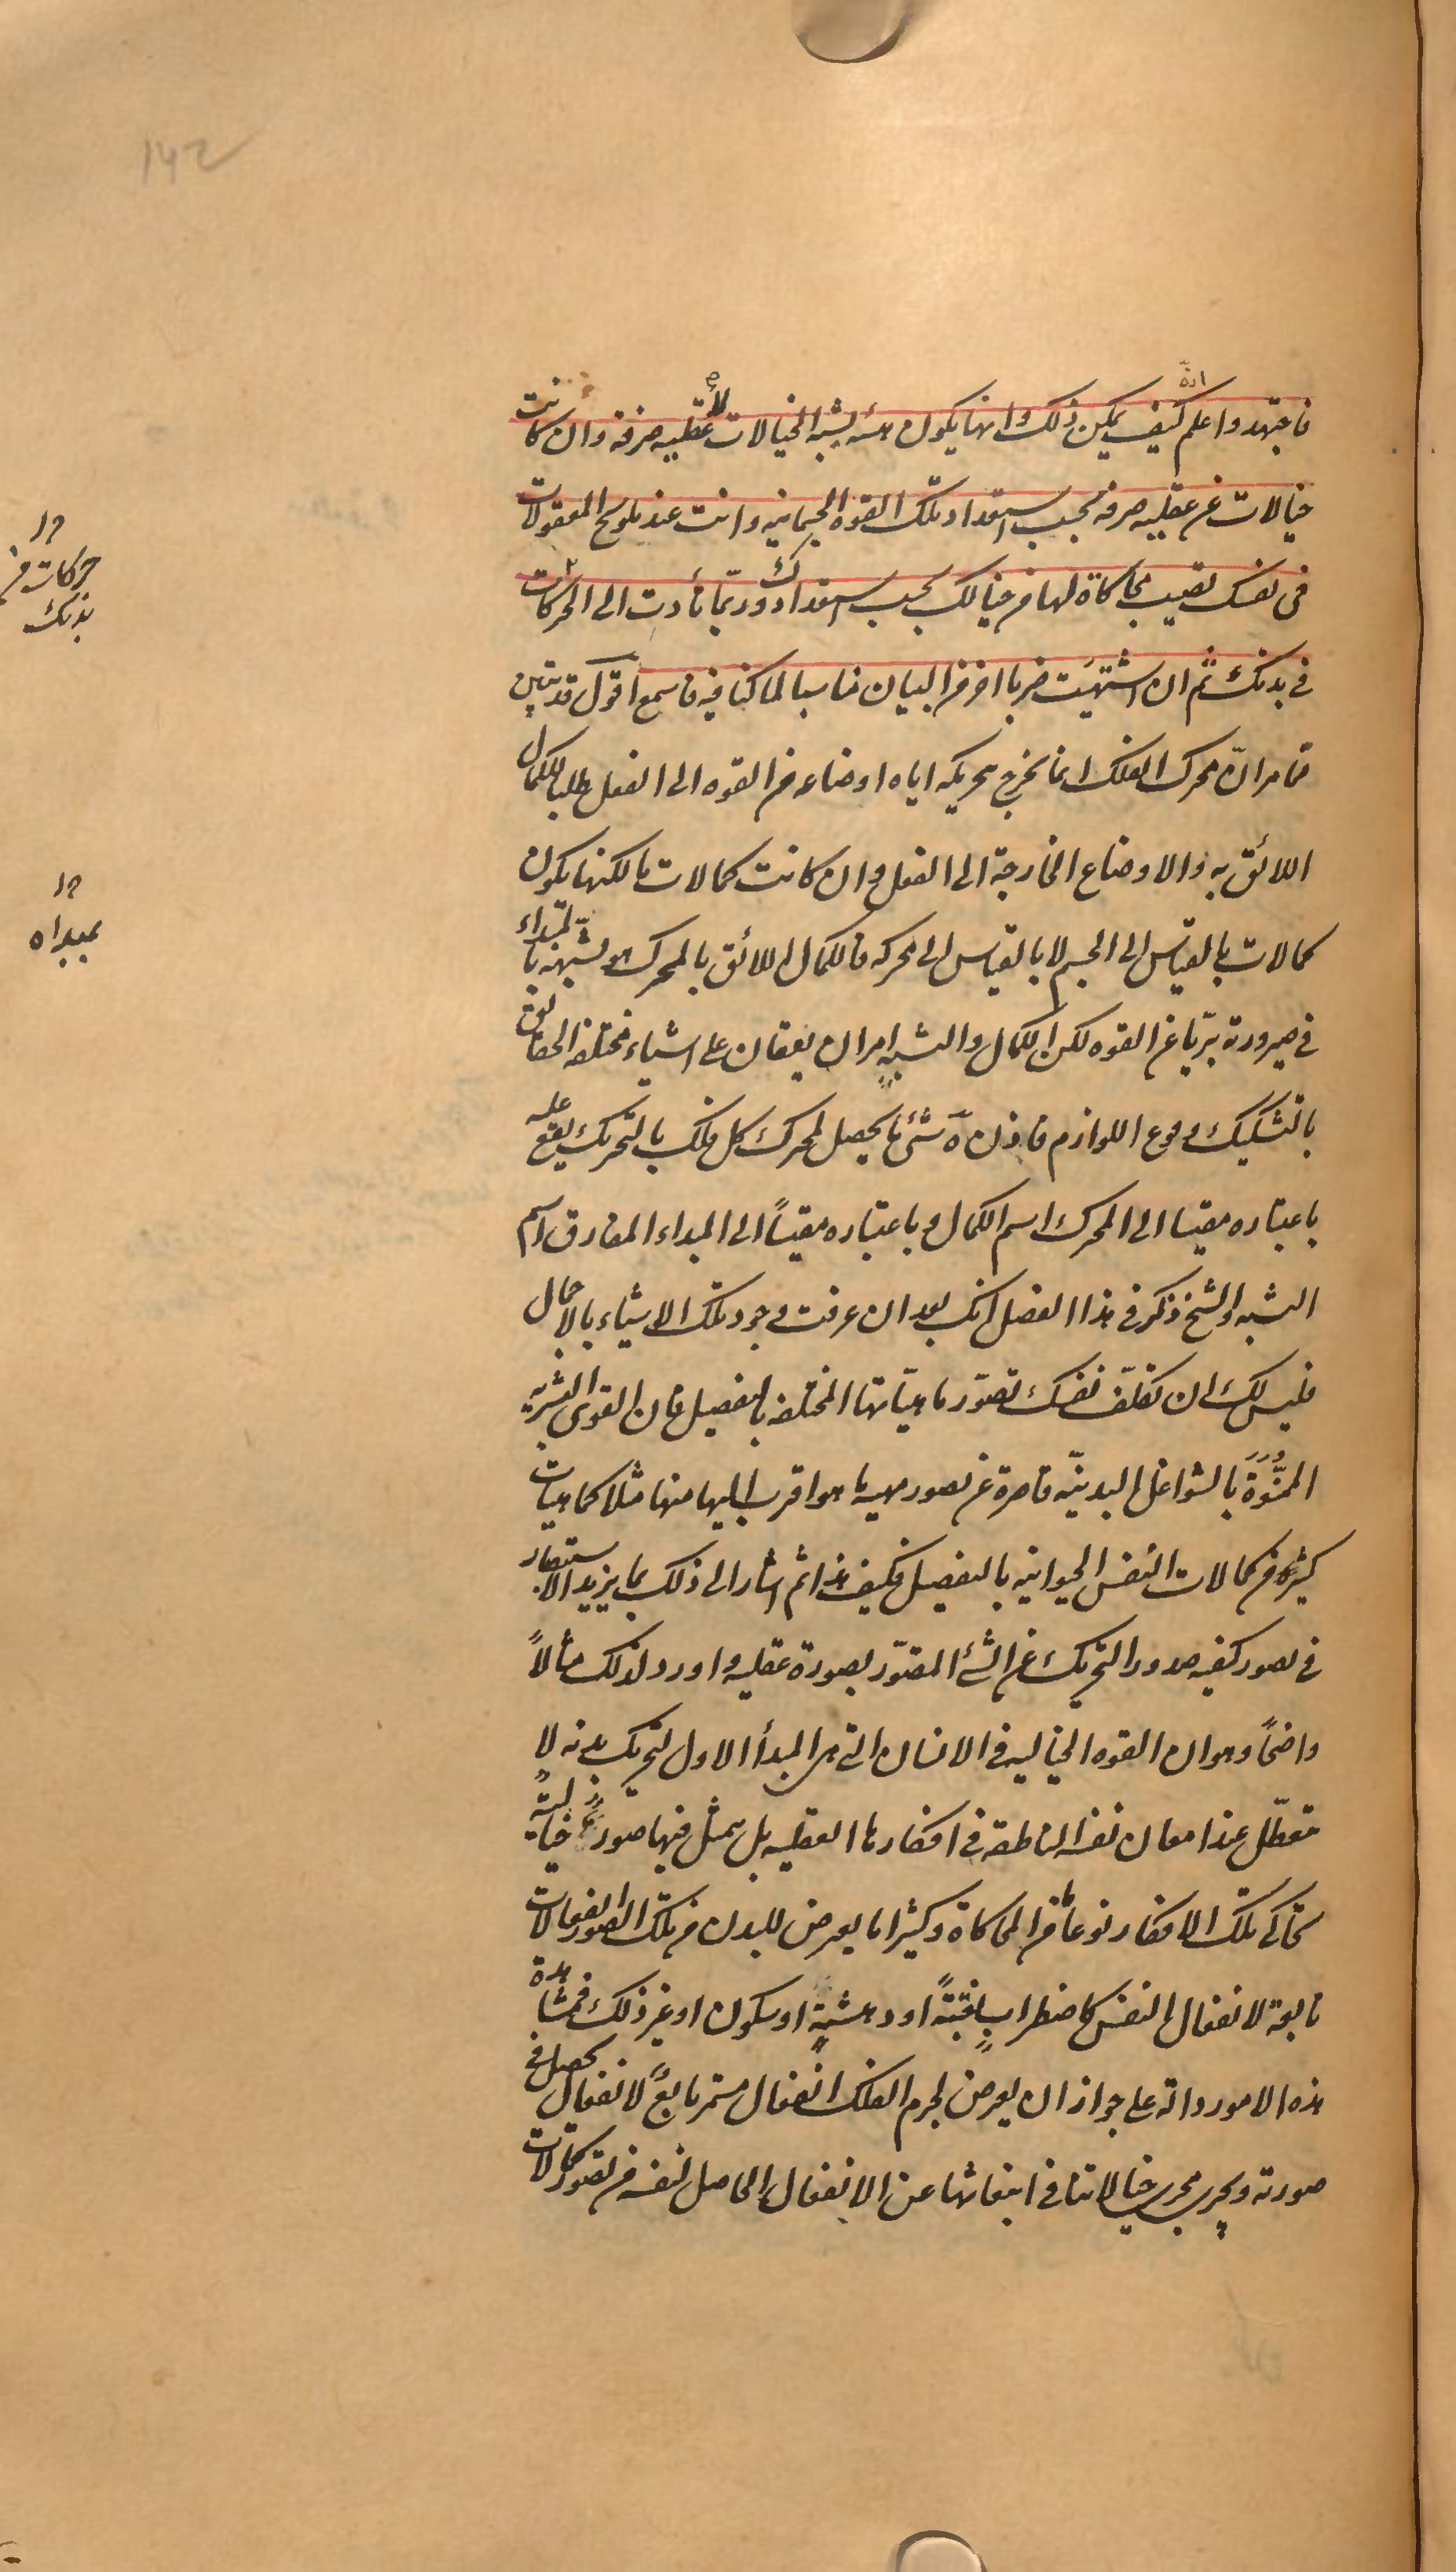 142
انه
فاجتهد واعلم كيف يمكن ذلك وانها يكون هيئه يشبه الخيالات لا عقليه صرفة وان كانت
خيالات عن عقليه صرفه بحسب استعداد تلك القوه الجسمانيه وانت عند تلويح المعقولات
فى نفسك تصيب محاكاة لها من خيالك بحسب استعدادك وربّما تأدت الى الحركات
فى بدنك ثم ان اشتهيت ضربا اخر من البيان مناسبا لما كنا فيه فاسمع اقول قد تبين
مما مر انّ محرك الفلك انما يخرج بتحريكه اياه اوضاعه من القوه الى الفعل طلبا للكمال
اللائق به والاوضاع الخارجة الى الفعل وان كانت كمالات ما لكنها يكون
كمالات بالقياس الى الجسم لا بالقياس الى محركه فالكمال اللائق بالمحرك هو تشبهه بالمبداء
فى صيرورته بريّا عن القوه لكن الكمال والتشبه امران يقعان على اشياء مختلفه الحقائق
بالتشكيك وقوع اللوازم فاذن ه شئ ما يحصل لمحرك كل فلك بالتحريك يقع عليه
باعتباره مقيسا الى المحرك اسم الكمال وباعتباره مقيساً الى المبداء المفارق اسم
التشبه والشيخ ذكر فى هذا الفصل انك بعد ان عرفت وجود تلك الاشياء بالاجمال
فليس لك ان تكلّف نفسك تصوّر ماهيّاتها المختلفه بالتفصيل فان القوى البشريه
الممنُوّة بالشواغل البدنيّه قاصرة عن تصور مهيه ما هو اقرب اليها منها مثلا كماهيات
كثيرة من كمالات النفس الحيوانيه بالتفصيل فكيف هذا ثم اشار الى ذلك بما يزيد الاستبصار
فى تصور كيفيه صدور التحريك عن الشئ المتصوّر بصورة عقليه واورد لذلك مثالاً
واضحاً وهو ان القوه الخياليه فى الانسان التى هى المبدأ الاول لتحريك بدنه لا
تتعطّل عند امعان نفسه الناطقه فى افكارها العقليه بل يتمثل فيها صور خيالية
تحاكى تلك الافكار نوعاً من المحاكاة وكثيرا ما يعرض للبدن من تلك الصور انفعالات
تابعة لانفعال النفس كاضطراب او دهشةٍ او سكون او غير ذلك فمشاهدة
هذه الامور دالة على جواز ان يعرض لجرم الفلك انفعال مستمر تابعٌ لانفعال يحصل فى
صورته ويجرى مجرى خيالاتنا فى انبعاثها عن الانفعال الحاصل لنفسه من تصور كمالات
حركات من
بدنك
بمبداه